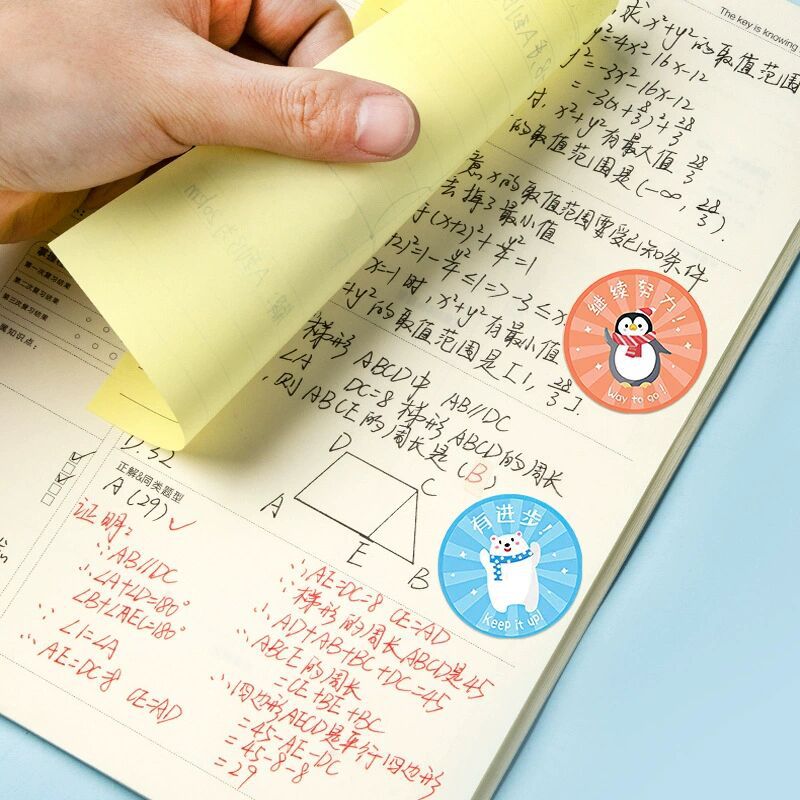 The key is knowing
,求x²+y²的取值范围
y²=4x²-16x-12
y²=-3x²-16x-12
=-3(x+8/3)²+28/3
时,x²+y²有最大值28/3
的取值范围是(-∞,28/3).
意x的取值范围要受已知条件
去掉了最小值
(x+2)²+y²/4=1
+2)²=1-y²/4≤1=>-3≤x
x=-1时,x²+y²有最小值
+y²的取值范围是[1,28/3].
继续努力!
Way to go!
第一次复习结果
第二次复习结果
第三次复习结果
属知识点:
梯形ABCD中 AB//DC
∠A DC=8 梯形ABCD的周长
,则ABCE的周长是(B)
D.32
正解&同类题型
A(29)✓
D
C
A
E
B
有进步!
Keep it up!
证明:
∵AB//DC
∴∠A+∠D=180°
∠B+∠AEC=180°
∵∠1=∠A
∴AE=DC=8 CE=AD
∴AE=DC=8 CE=AD
∵梯形的周长ABCD是45
∴AD+AB+BC+DC=45
∴ABCE的周长
=CE+BE+BC
∴四边形AECD是平行四边形
=45-AE-DC
=45-8-8
=29